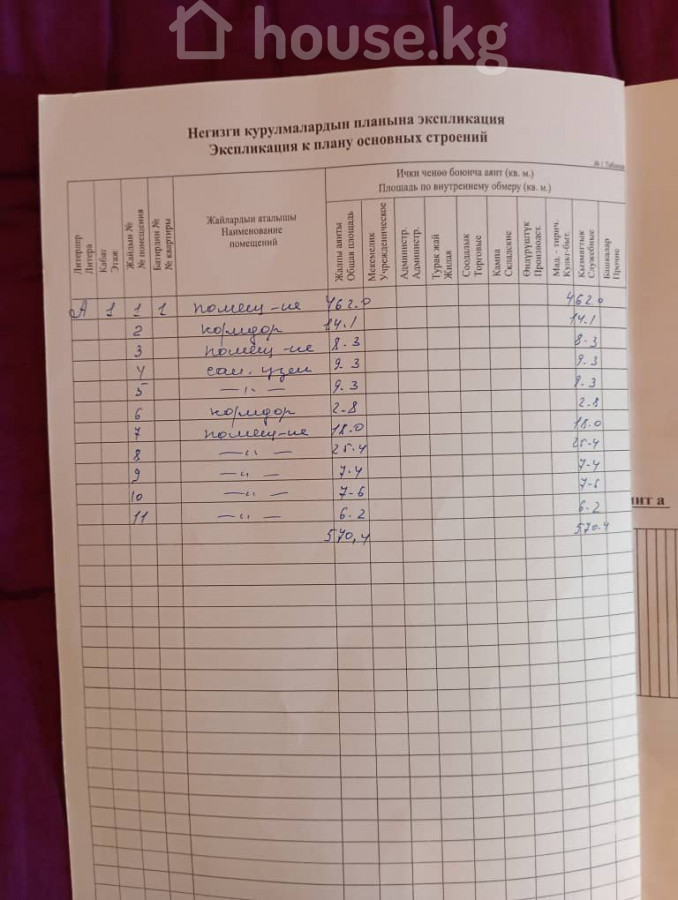 house.kg
Негизги курулмалардын планына экспликация
Экспликация к плану основных строений
№ 1 Таблица
Ички ченөө боюнча аянт (кв. м.)
Площадь по внутреннему обмеру (кв. м.)
Литерлер
Литера
Кабат
Этаж
Жайдын №
№ помещения
Батирдин №
№ квартиры
Жайлардын аталышы
Наименование
помещений
Жалпы аянты
Общая площадь
Мекемелик
Учрежденическое
Администр.
Администр.
Турак жай
Жилая
Соодалык
Торговые
Кампа
Складские
Өндүрүштүк
Производст.
Мад. - тирич.
Культ-быт.
Кызматтык
Служебные
Башкалар
Прочие
А 1 1 1 помещ-ие 462.0 462.0
2 коридор 14.1 14.1
3 помещ-ие 8.3 8.3
4 сан. узел 9.3 9.3
5 —"— 9.3 9.3
6 коридор 2.8 2.8
7 помещ-ие 18.0 18.0
8 —"— 25.4 25.4
9 —"— 7.4 7.4
10 —"— 7-6 7-6
11 —"— 6.2 6.2
570,4 570.4